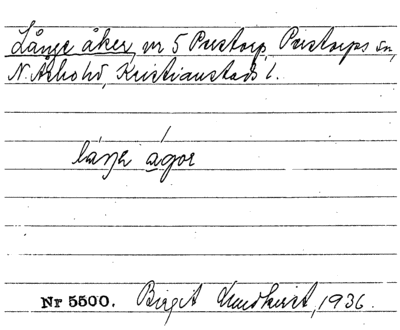 Långe åker, nr 5 Pustorp, Pustorps sn,
N. Åsbohd, Kristianstads l.
láŋa ágor
Nr 5500. Birgit Lundkvist, 1936.